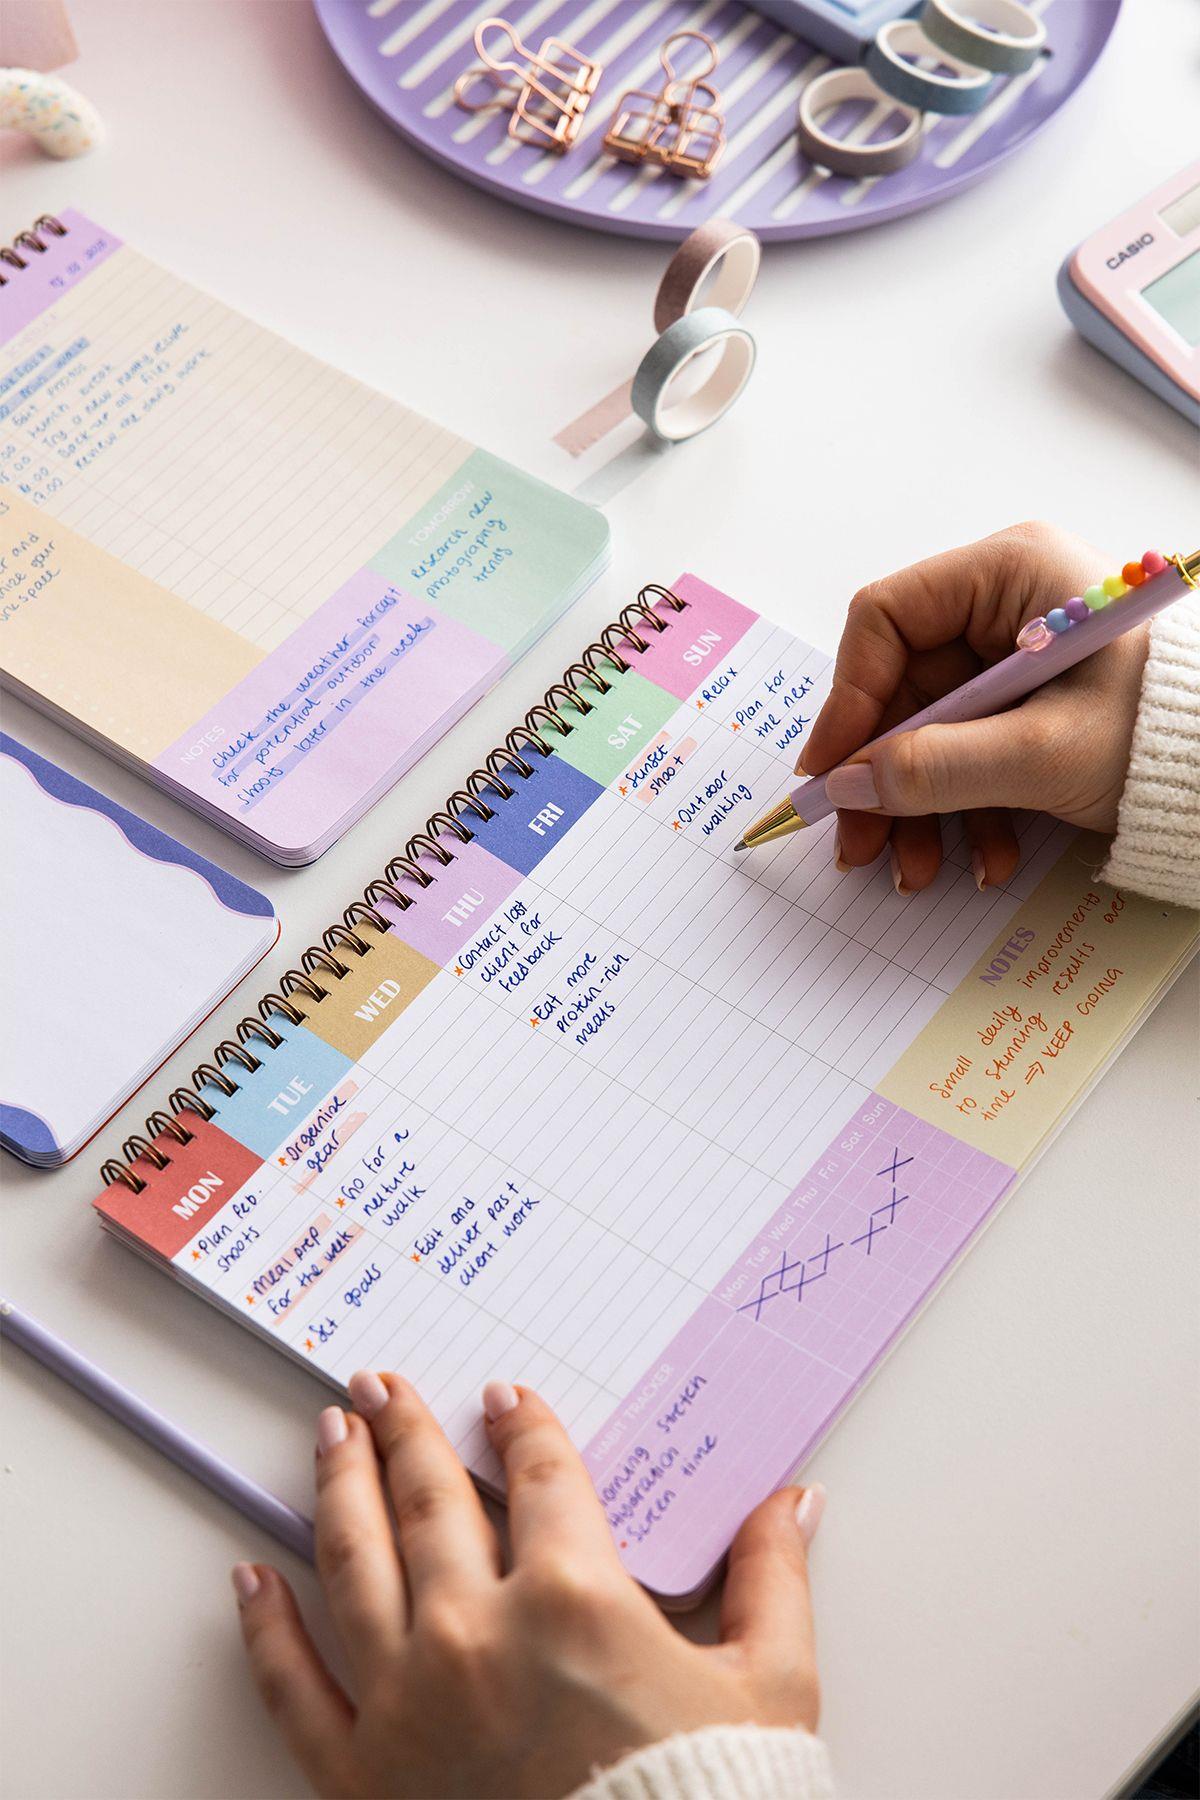 CASIO
SCHEDULE
Edit photos
Lunch break
Try a new healthy recipe
16.00 Back-up all files
17.00 Review the daily work
TOMORROW
Research new
photography
trends
NOTES
check the weather forcast
for potential outdoor
shoots later in the week
MON
*Plan Feb.
shoots
*Meal prep
for the week
*Set goals
TUE
*Organise
gear
*Go for a
nature
walk
*Edit and
deliver past
client work
WED
THU
*Contact last
client for
feedback
*Eat more
protein-rich
meals
FRI
SAT
*Sunset
shoot
*Outdoor
walking
SUN
*Relax
*Plan for
the next
week
NOTES
Small daily improvements over
to stunning results
time ⇒ KEEP GOING
HABIT TRACKER
Mon Tue Wed Thu Fri Sat Sun
stretch
Hydration
Screen time